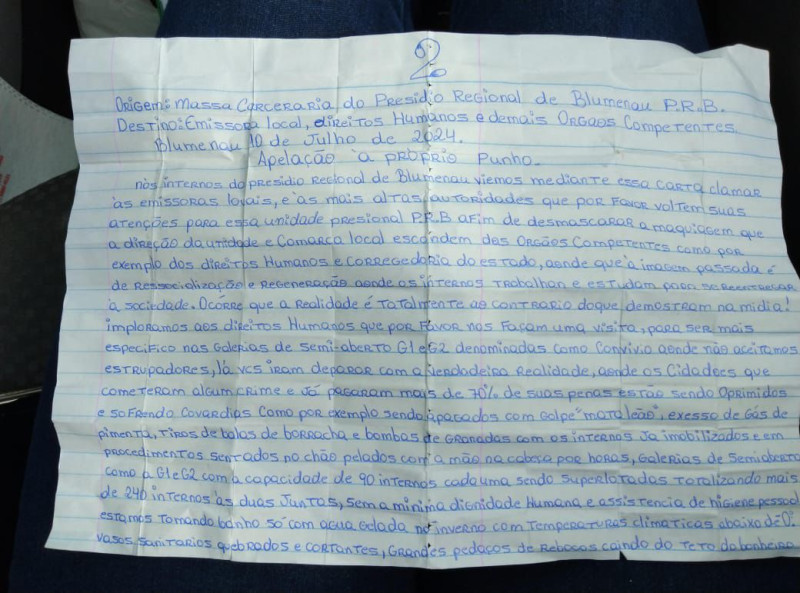 2
Origem: Massa Carceraria do Presidio Regional de Blumenau P.R.B.
Destino: Emissora local, direitos Humanos e demais Orgãos Competentes.
Blumenau 10 de Julho de 2024.
Apelação a próprio Punho.
nós internos do presidio Regional de Blumenau viemos mediante essa carta clamar
às emissoras locais, e as mais altas autoridades que por favor voltem suas
atenções para essa unidade presional P.R.B afim de desmascarar a maquiagem que
a direção da unidade e Comarca local escondem dos Orgãos Competentes como por
exemplo dos direitos Humanos e corregedoria do estado, aonde que a imagem passada é
de Ressocialização e Regeneração aonde os internos Trabalham e estudam para se
à sociedade. Ocorre que a Realidade é Totalmente ao contrario doque demostram na midia!
imploramos aos direitos Humanos que por favor nos façam uma visita, para ser mais
especifico nas Galerias de Semi-aberto G1 e G2 denominadas como Convivio aonde não aceitamos
estrupadores, lá vcs iram deparar com a verdadeira Realidade, aonde os Cidadões que
cometeram algum crime e Já pagaram mais de 70% de suas penas estão sendo Oprimidos
e sofrendo Covardias Como por exemplo sendo apagados com Golpe "mata leão", exesso de Gás de
pimenta, Tiros de balas de borracha e bombas de Granadas com os internos Ja imobilizados e em
procedimentos sentados no chão pelados com a mão na cabeça por horas, Galerias de Semiaberto
como a G1 e G2 com a capacidade de 90 internos cada uma sendo superlotadas Totalizando mais
de 240 internos as duas Juntas, sem a minima dignidade Humana e assistencia de higiene pessoal
estamos Tomando banho só com agua Gelada no inverno com Temperaturas climaticas abaixo de 0°.
vasos sanitarios quebrados e cortantes, Grandes pedaços de Rebocos caindo do Teto do banheiro